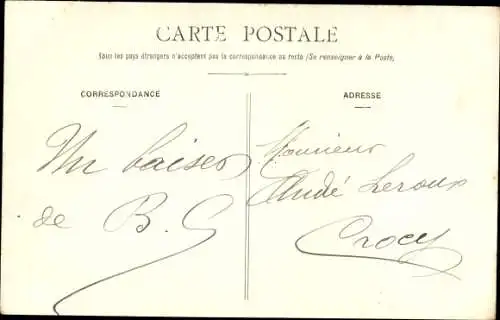 CARTE POSTALE
Tous les pays étrangers n'acceptent pas la correspondance au recto (Se renseigner à la Poste)
CORRESPONDANCE
ADRESSE
Un baiser
de B. G
Monsieur
André Leroux
Crocy